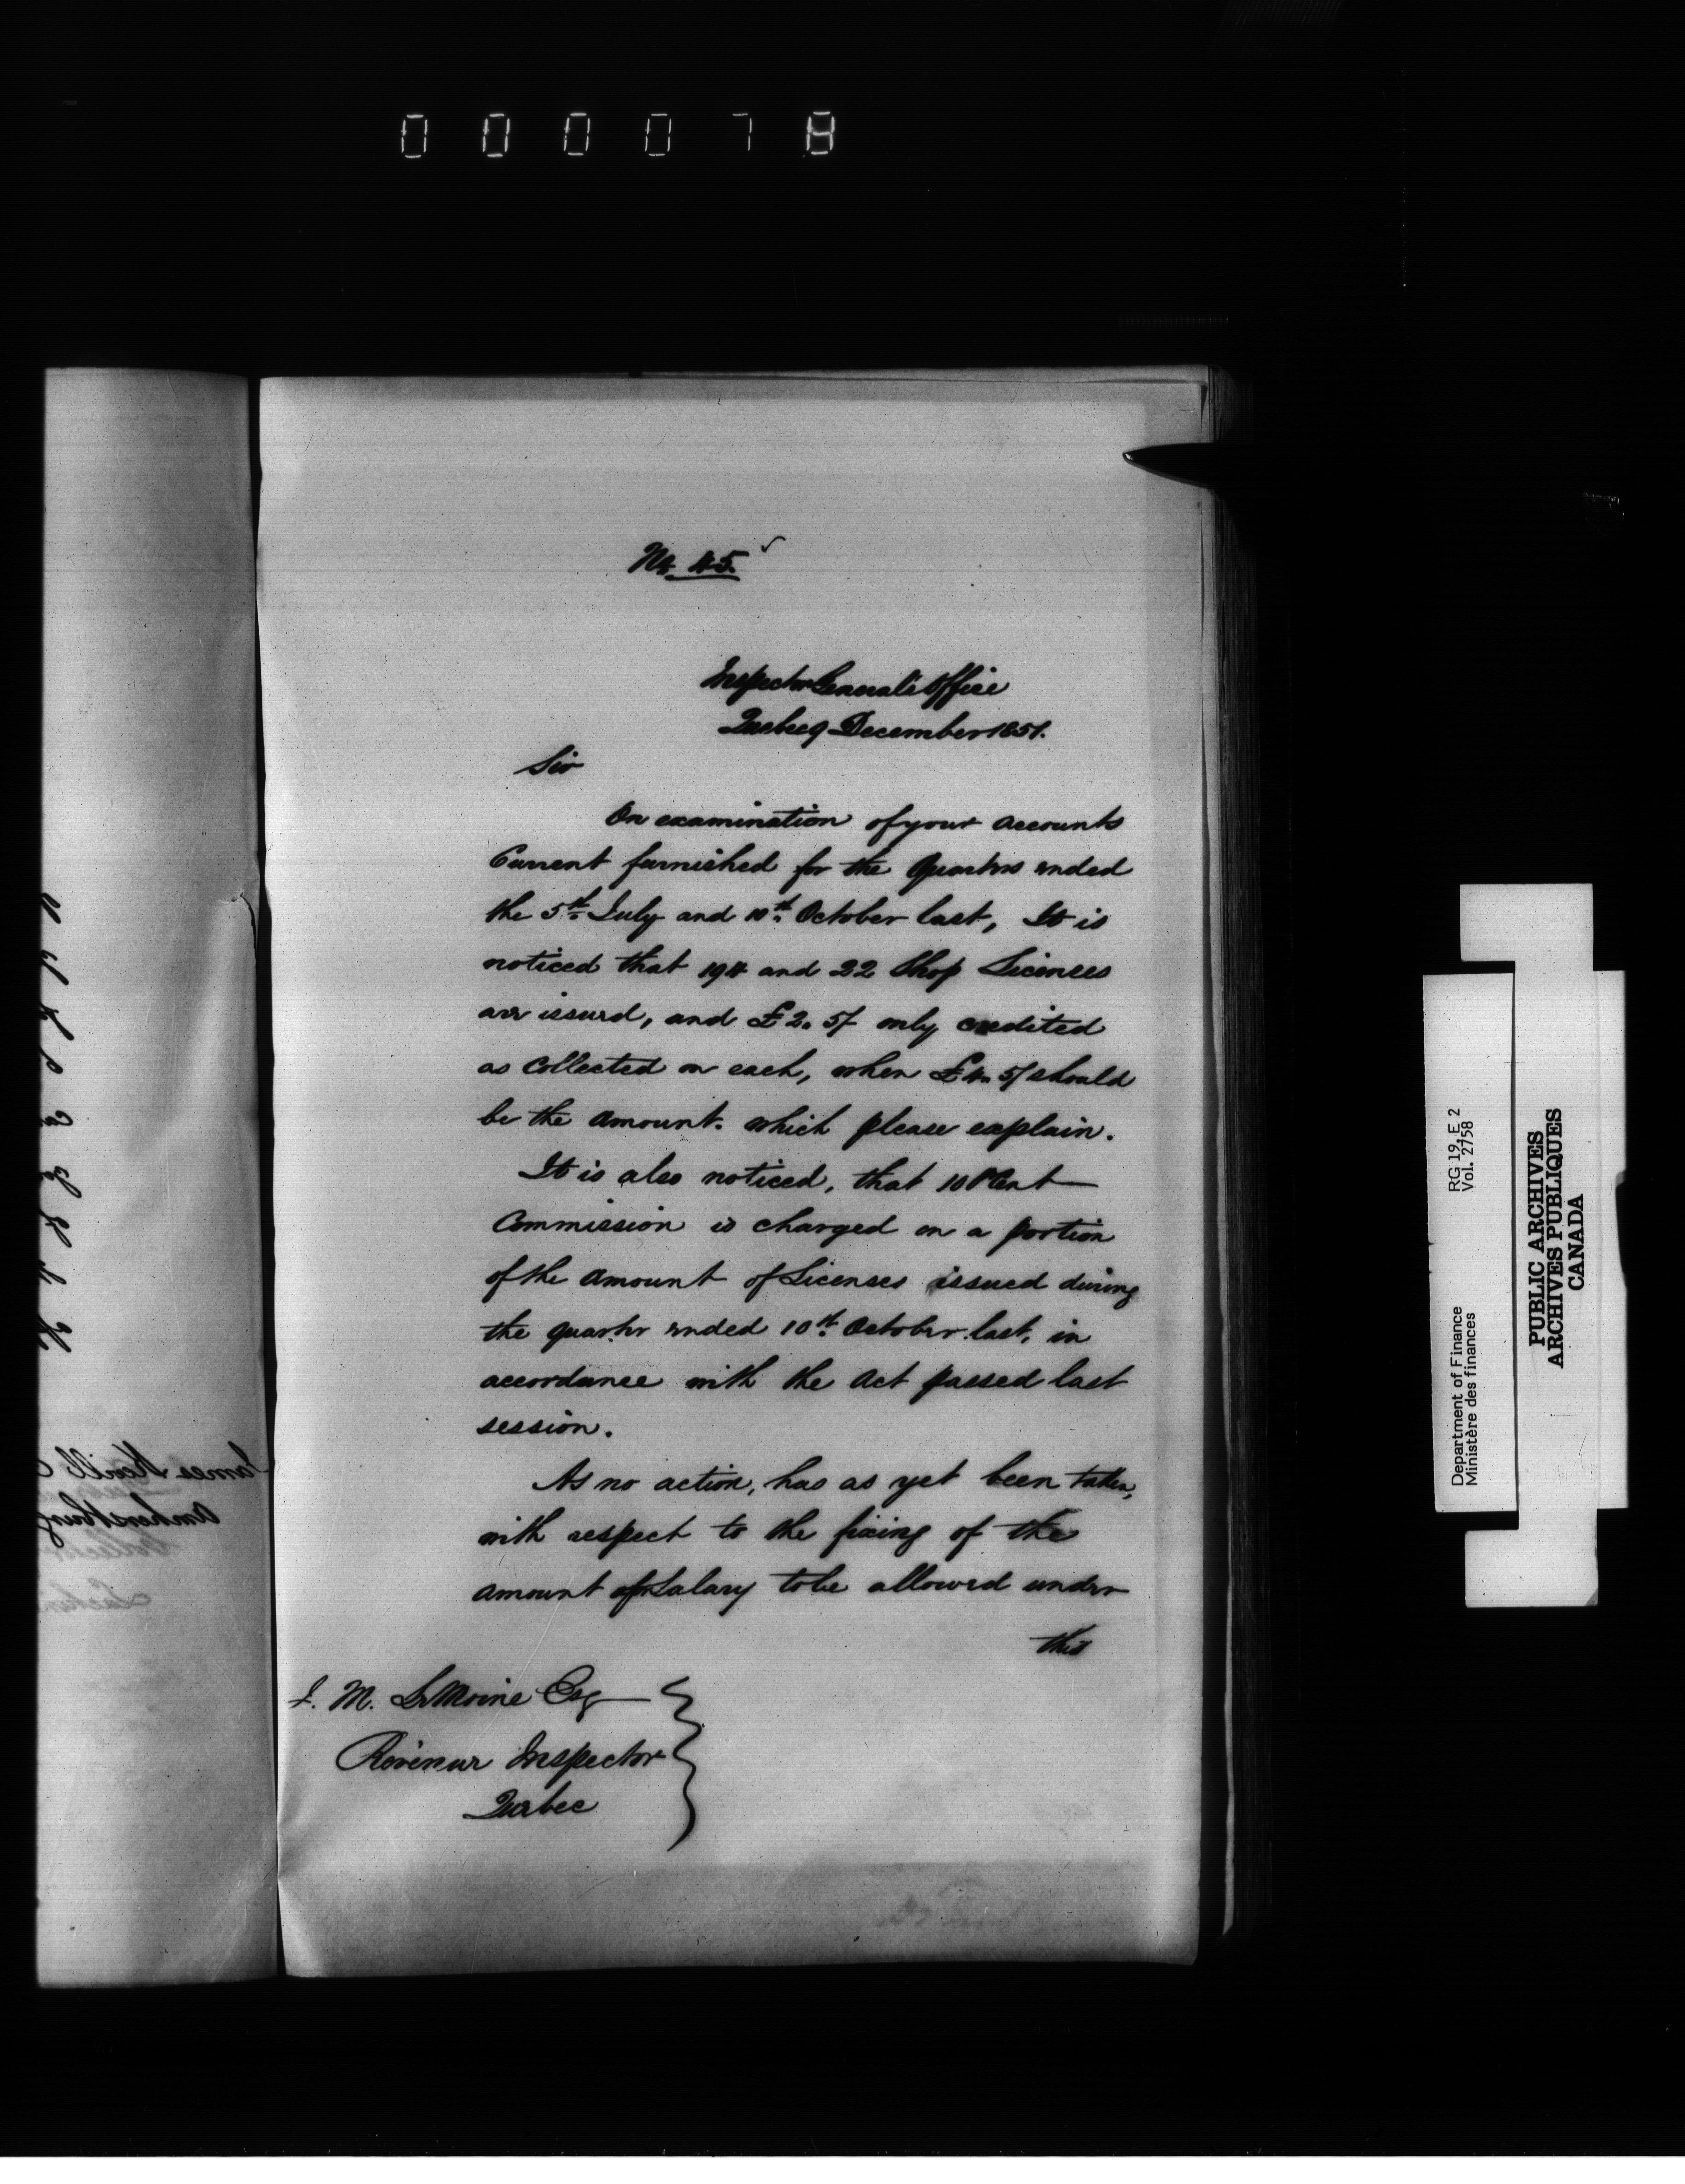 000078
No. 45.
Inspector General's Office
Quebec 9 December 1851.
Sir
On examination of your Accounts
Current furnished for the Quarters ended
the 5th July and 10th October last, It is
noticed that 194 and 22 Shop Licenses
are issued, and £2.5/ only credited
as collected on each, when £4.5/ should
be the amount. which please explain.
It is also noticed, that 10 P Cent
Commission is charged on a portion
of the amount of Licenses issued during
the quarter ended 10th October last, in
accordance with the Act passed last
session.
As no action, has as yet been taken,
with respect to the fixing of the
amount of Salary to be allowed under
this
J. M. LeMoine Esq
Revenue Inspector
Quebec
RG 19, E 2
Vol. 2758
Department of Finance
Ministère des finances
PUBLIC ARCHIVES
ARCHIVES PUBLIQUES
CANADA